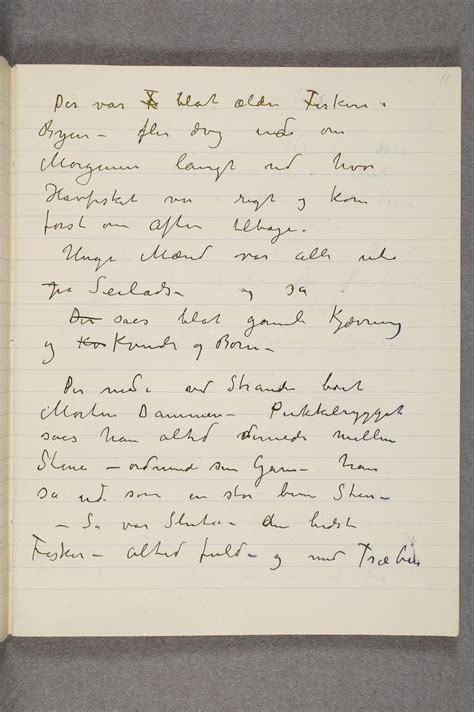 11
Der var blot ældre Fiskere i
Byen – de drog ud om
Morgenen langt ud hvor
Havfiskeriet var rigt og kom
først om Aften tilbage.
Unge Mænd var alle ude
paa Seilads – og saa
Der saaes blot gamle Kjærring
og Kvinder og Børn –
Der nede ved Stranden boet
Morten Dammen – Pukkelrygget
saaes han altid dernede mellem
Stene – ordnend sin Garn – han
sa ud som en stor brun Sten –
– Sa var – den bedste
Fisker – altid fuld – og med Træben